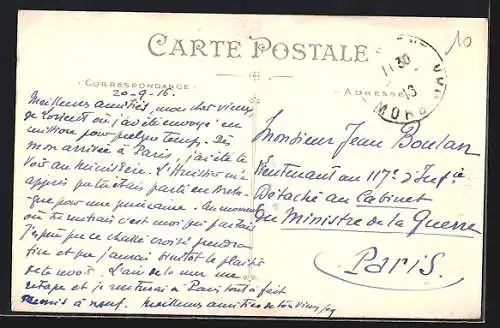 CARTE POSTALE
CORRESPONDANCE
ADRESSE
10
11 30
13
MORB
20-9-16.
Meilleures amitiés, mon cher vieux,
de Lorient où j'ai été envoyé en
mission pour quelque temps. Dès
mon arrivée à Paris, j'ai été te
voir au Ministère. L'Huissier m'a
appris que tu étais parti en Breta-
gne pour une semaine. Au moment
où tu rentrais c'est moi qui partais
J'espère que ce chassé croisé prendra
fin et que j'aurai bientôt le plaisir
de te voir. L'air de la mer me
retape et je rentrerai à Paris tout à fait
remis à neuf. Meilleures amitiés de ton vieux
Monsieur Jean Boulan
Lieutenant au 117e d'Infie
Détaché au Cabinet
du Ministre de la Guerre
Paris.